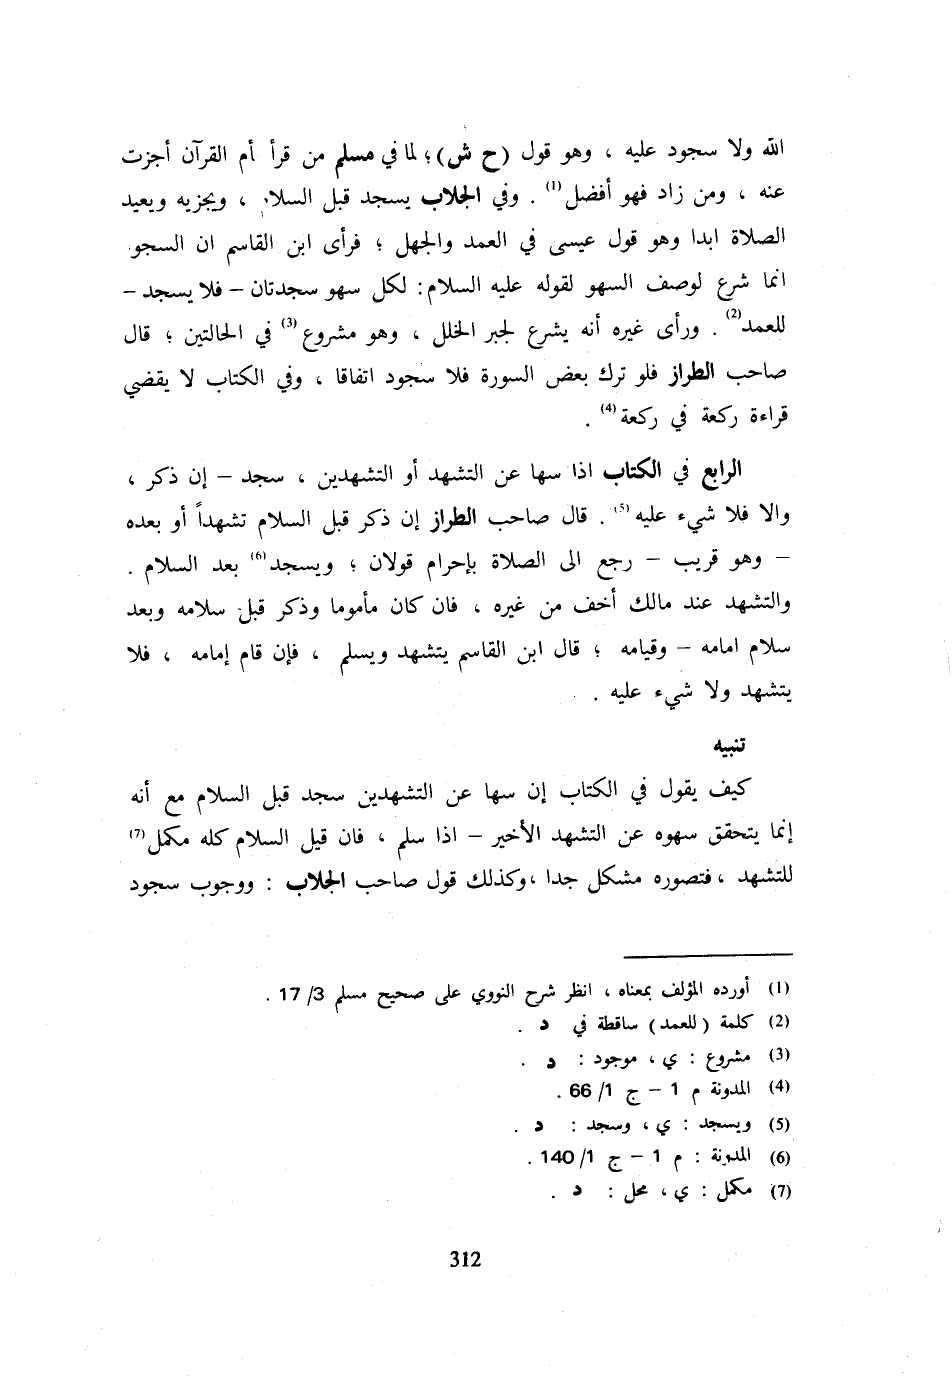 الله ولا سجود عليه ، وهو قول (ح ش)؛ لما في مسلم من قرأ أم القرآن أجزت
عنه ، ومن زاد فهو أفضل(1) . وفي الجلاب يسجد قبل السلام ، ويجزيه ويعيد
الصلاة ابدا وهو قول عيسى في العمد والجهل ؛ فرأى ابن القاسم ان السجو
انما شرع لوصف السهو لقوله عليه السلام: لكل سهو سجدتان – فلا يسجد –
للعمد(2) . ورأى غيره أنه يشرع لجبر الخلل ، وهو مشروع(3) في الحالتين ؛ قال
صاحب الطراز فلو ترك بعض السورة فلا سجود اتفاقا ، وفي الكتاب لا يقضي
قراءة ركعة في ركعة(4) .
الرابع في الكتاب اذا سها عن التشهد أو التشهدين ، سجد – إن ذكر ،
والا فلا شيء عليه(5) . قال صاحب الطراز إن ذكر قبل السلام تشهداً أو بعده
– وهو قريب – رجع الى الصلاة بإحرام قولان ؛ ويسجد(6) بعد السلام .
والتشهد عند مالك أخف من غيره ، فان كان مأموما وذكر قبل سلامه وبعد
سلام امامه – وقيامه ؛ قال ابن القاسم يتشهد ويسلم ، فإن قام إمامه ، فلا
يتشهد ولا شيء عليه .
تنبيه
كيف يقول في الكتاب إن سها عن التشهدين سجد قبل السلام مع أنه
إنما يتحقق سهوه عن التشهد الأخير – اذا سلم ، فان قيل السلام كله مكمل(7)
للتشهد ، فتصوره مشكل جدا ،وكذلك قول صاحب الجلاب : ووجوب سجود
(1) أورده المؤلف بمعناه ، انظر شرح النووي على صحيح مسلم 3/ 17 .
(2) كلمة ( للعمد ) ساقطة في د .
(3) مشروع : ي ، موجود : د .
(4) المدونة م 1 – ج 1/ 66 .
(5) ويسجد : ي ، وسجد : د .
(6) المدونة : م 1 – ج 1/ 140 .
(7) مكمل : ي ، محل : د .
312